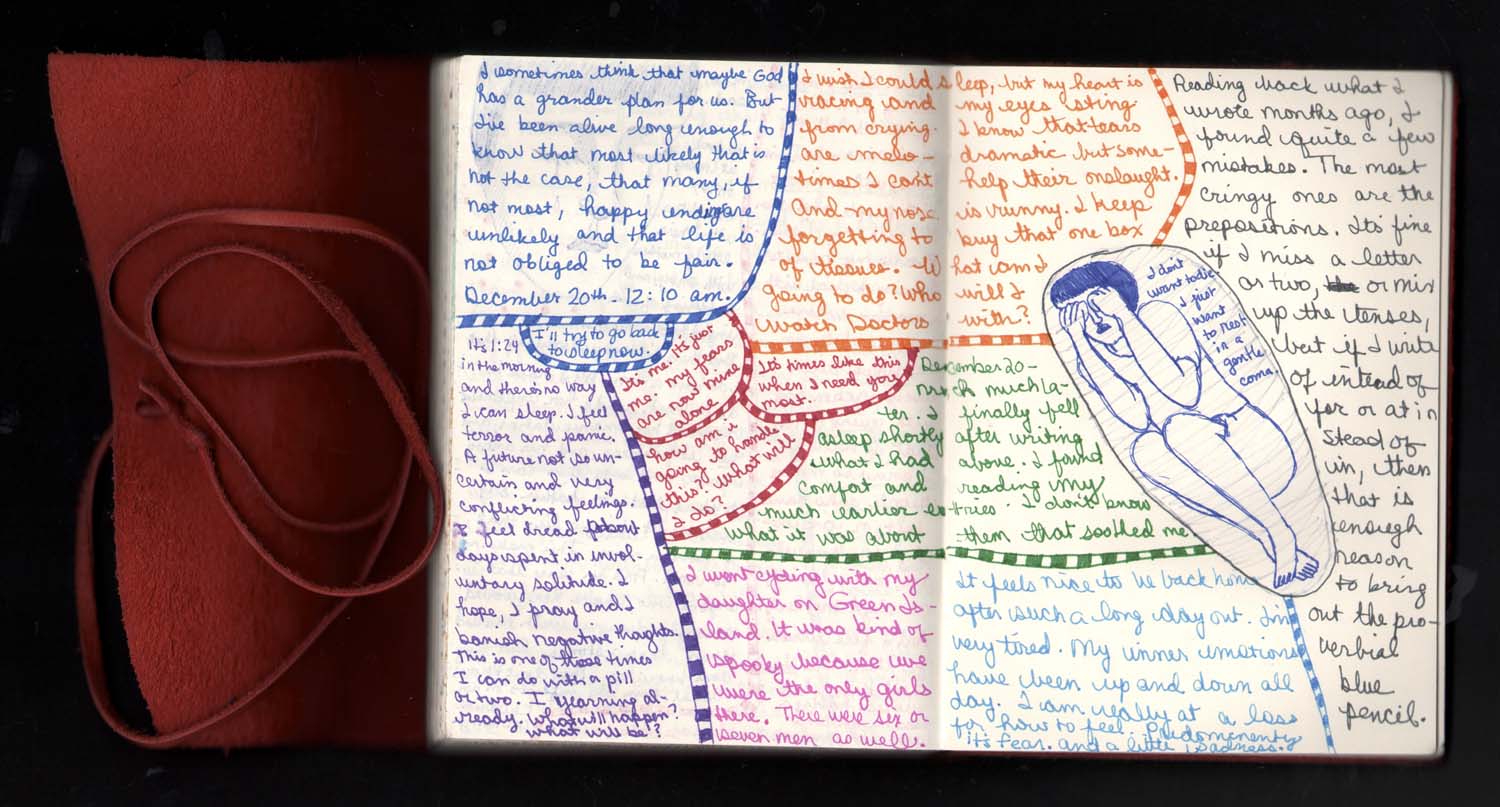 I sometimes think that maybe God
has a grander plan for us. But
I've been alive long enough to
know that most likely that is
not the case, that many, if
not most, happy endings are
unlikely and that life is
not obliged to be fair.
December 20th - 12:10 am.
I'll try to go back
to sleep now.
It's 1:24
in the morning
and there's no way
I can sleep. I feel
terror and panic.
A future not so un-
certain and very
conflicting feelings.
I feel dread about
days spent in invol-
untary solitude. I
hope, I pray and I
banish negative thoghts.
This is one of those times
I can do with a pill
or two. I yearning al-
ready. What will happen?
What will be?
It's me. It's just
me. my fears
are now mine
alone
It's times like this
when I need you
most.
how am i
going to handle
this? What will
I do?
I wish I could sleep, but my heart is
racing and my eyes sting
from crying. I know that tears
are melo- dramatic but some-
times I can't help their onslaught.
And my nose is runny. I keep
forgetting to buy that one box
of tissues. What am I
going to do? Who will I
watch Doctors with?
December 20 -
much much la-
ter. I finally fell
asleep shortly after writing
what I had above. I found
comfort and reading my
much earlier entries. I don't know
what it was about them that soothed me
I went cycling with my
daughter on Green Is-
land. It was kind of
spooky because we
were the only girls
there. There were six or
seven men as well.
It feels nice to be back home
after such a long day out. I'm
very tired. My inner emotions
have been up and down all
day. I am really at a loss
for how to feel. Predominently
it's fear. and a little sadness.
I don't
want to die
I just
want
to rest
in a
gentle
coma.
Reading back what I
wrote months ago, I
found quite a few
mistakes. The most
cringy ones are the
prepositions. It's fine
if I miss a letter
or two, or mix
up the tenses,
but if I write
of intead of
for or at in
stead of
in, then
that is
enough
reason
to bring
out the pro-
verbial
blue
pencil.